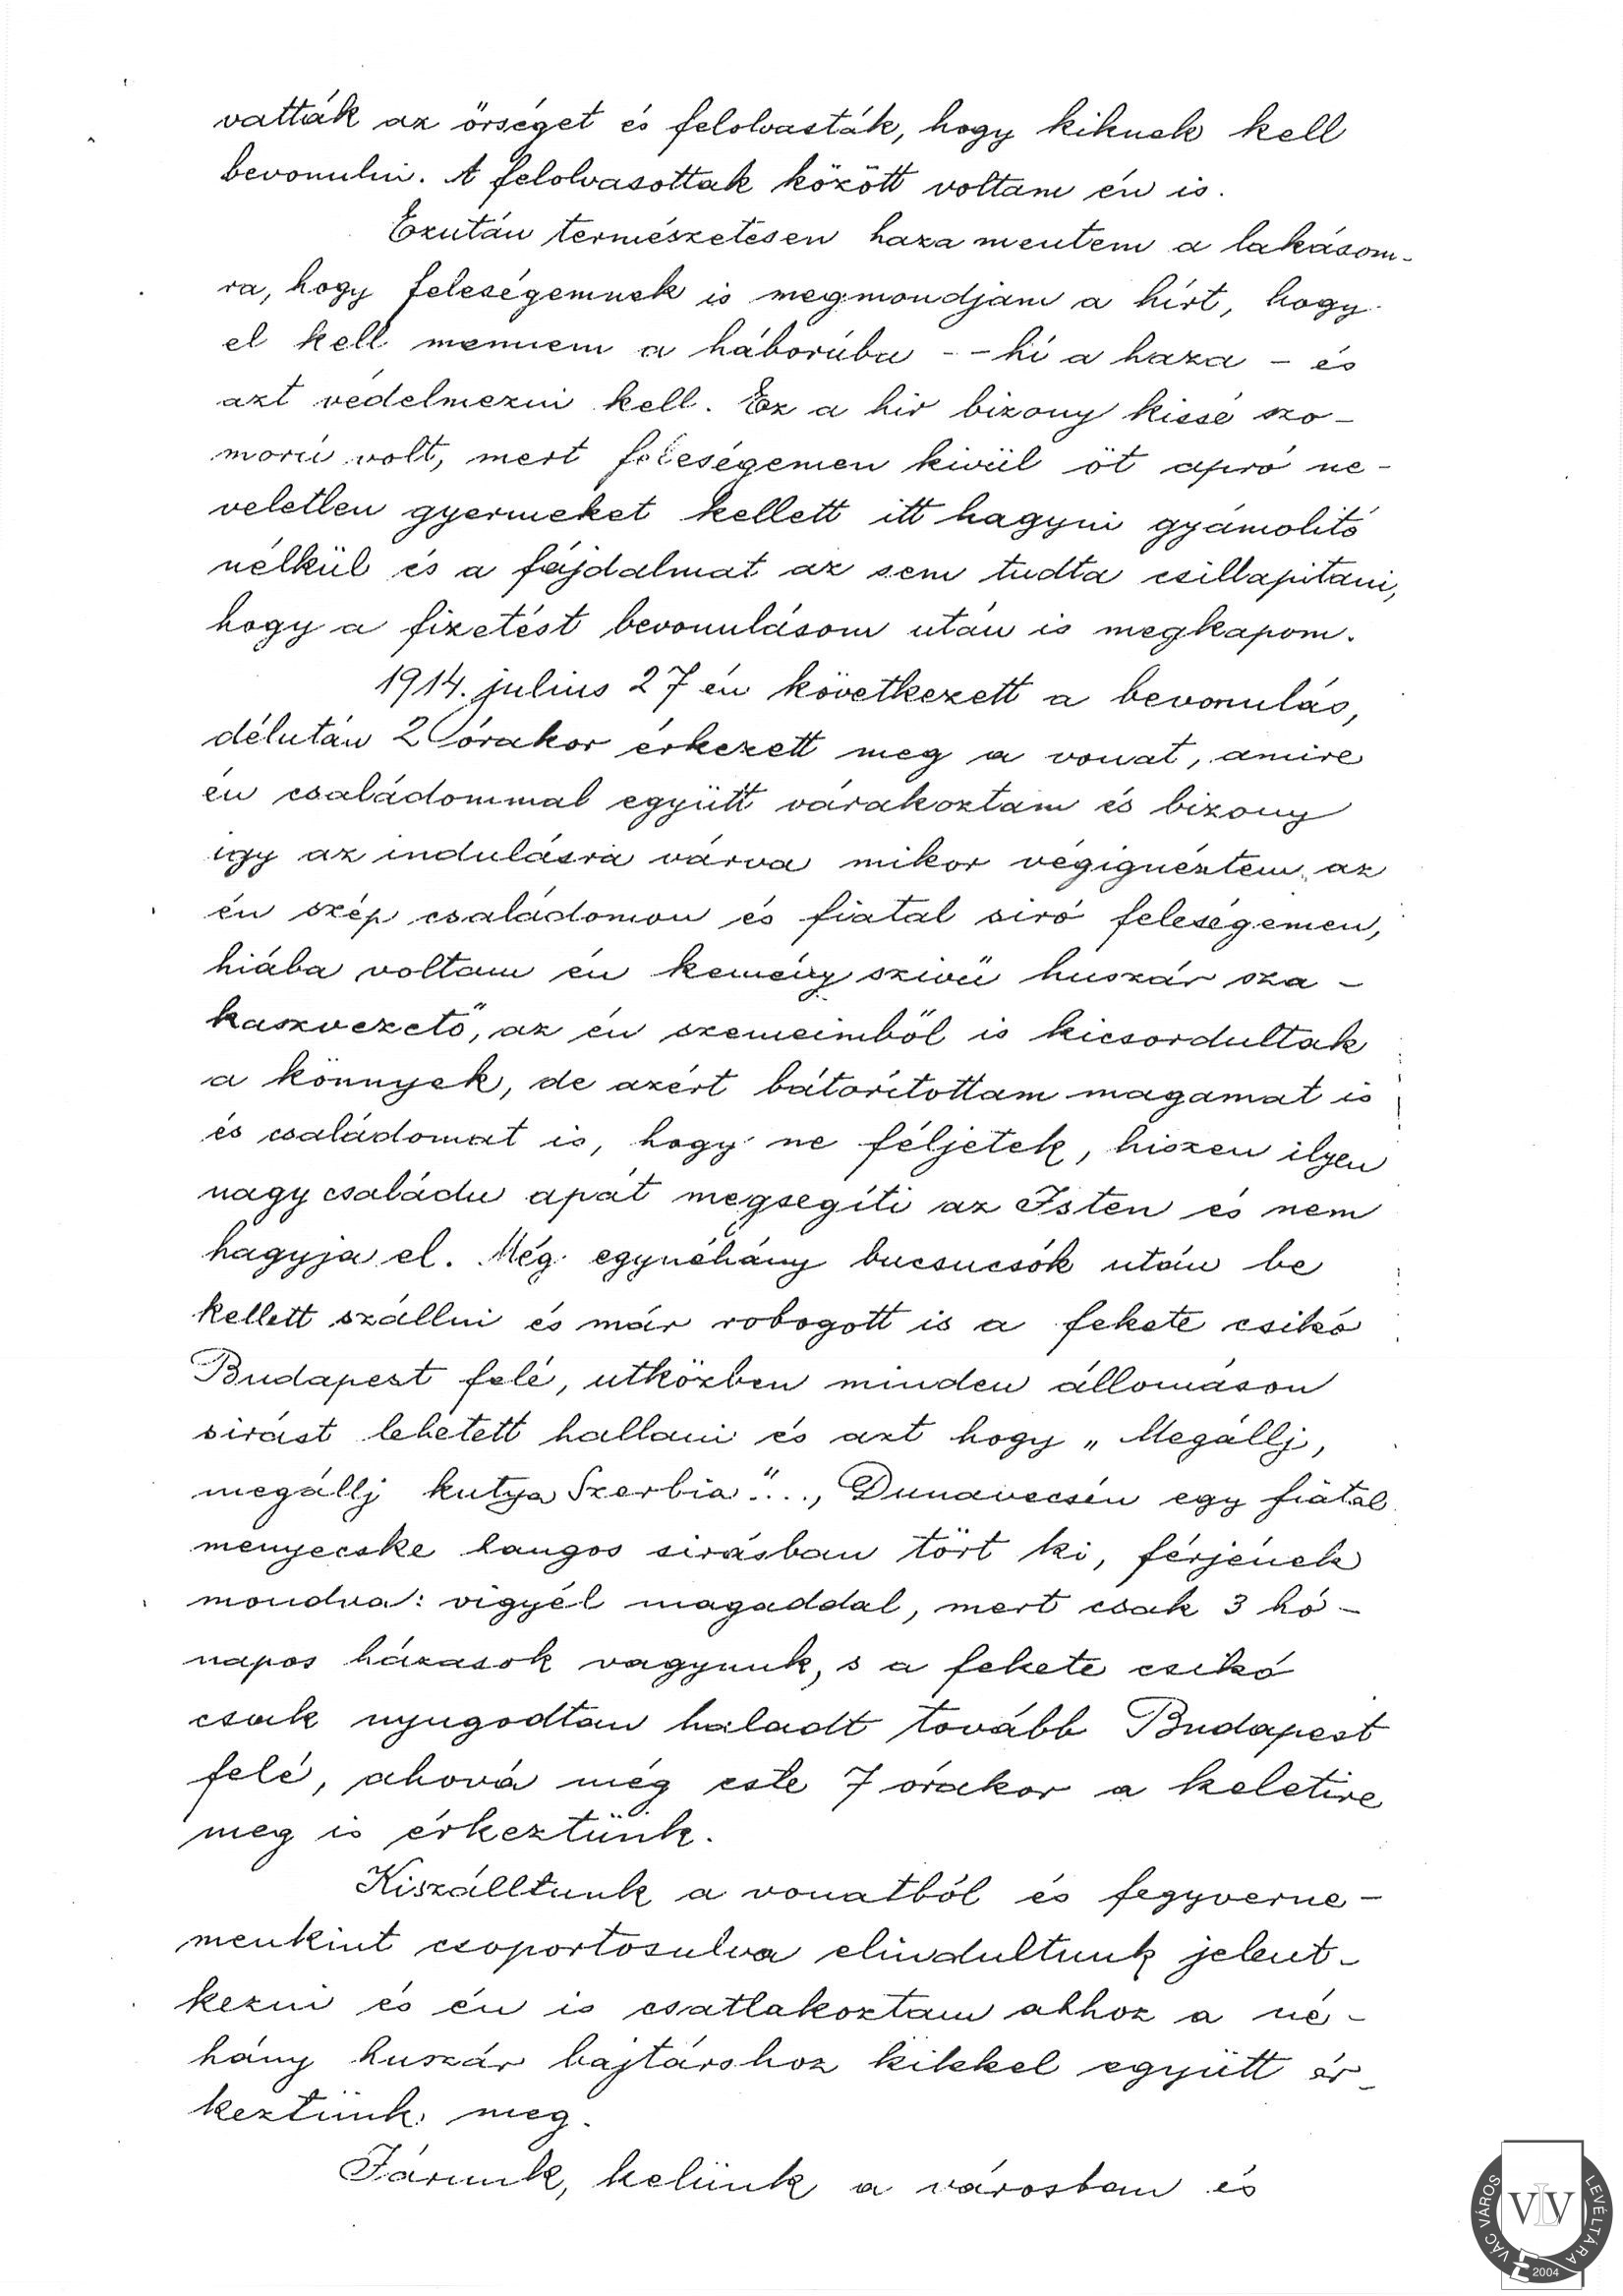 vatták az őrséget és felolvasták, hogy kiknek kell
bevonulni. A felolvasottak között voltam én is.
Ezután természetesen haza mentem a lakásom-
ra, hogy feleségemnek is megmondjam a hírt, hogy
el kell mennem a háborúba - - hí a haza - és
azt védelmezni kell. Ez a hir bizony kissé szo-
morú volt, mert feleségemen kivül öt apró ne-
veletlen gyermeket kellett itt hagyni gyámolitó
nélkül és a fájdalmat az sem tudta csillapitani,
hogy a fizetést bevonulásom után is megkapom.
1914. julius 27 én következett a bevonulás,
délután 2 órakor érkezett meg a vonat, amire
én családommal együtt várakoztam és bizony
igy az indulásra várva mikor végignéztem az
én szép családomon és fiatal siró feleségemen,
hiába voltam én kemény szivü huszár sza-
kaszvezető, az én szemeimből is kicsordultak
a könnyek, de azért bátorítottam magamat is
és családomat is, hogy ne féljetek, hiszen ilyen
nagy családu apát megsegíti az Isten és nem
hagyja el. Még egynéhány bucsucsók után be
kellett szállni és már robogott is a fekete csikó
Budapest felé, utközben minden állomáson
sirást lehetett hallani és azt hogy „Megállj,
megállj kutya Szerbia"..., Dunavecsén egy fiatal
menyecske hangos sirásban tört ki, férjének
mondva: vigyél magaddal, mert csak 3 hó-
napos házasok vagyunk, s a fekete csikó
csak nyugodtan haladt tovább Budapest
felé, ahová még este 7 órakor a keletire
meg is érkeztünk.
Kiszálltunk a vonatból és fegyverne-
menkint csoportosulva elindultunk jelent-
kezni és én is csatlakoztam ahhoz a né-
hány huszár bajtárshoz kikkel együtt ér-
keztünk meg.
Járunk, kelünk a városban és
VÁC VÁROS LEVÉLTÁRA
VLV
2004